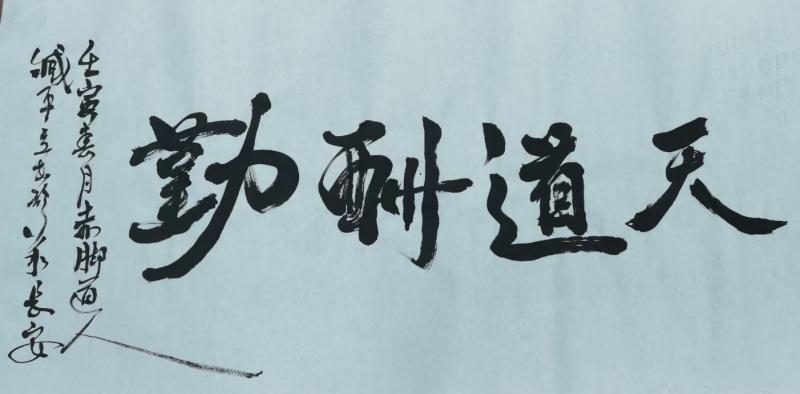 天道酬勤
壬寅春月赤脚道人
臧平立书於
长安